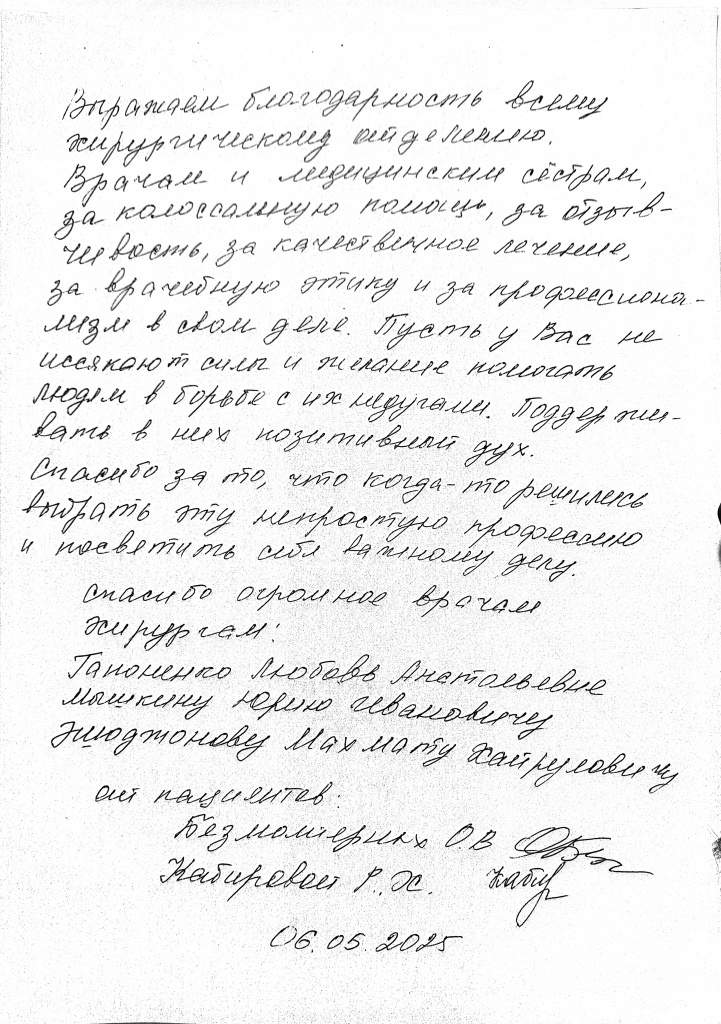 Выражаем благодарность всему
хирургическому отделению.
Врачам и медицинским сёстрам,
за колоссальную помощь, за отзыв-
чивость, за качественное лечение,
за врачебную этику и за профессиона-
лизм в свом деле. Пусть у Вас не
иссякают силы и желание помогать
людям в борьбе с их недугами. Поддержи-
вать в них позитивный дух.
Спасибо за то, что когда-то решились
выбрать эту непростую профессию
и посвятить себя важному делу.
Спасибо огромное врачам
хирургам:
Гапоненко Любовь Анатольевне
Мышкину Юрию Ивановичу
Эшоджонову Махмату Хайруловичу
от пациентов:
Безматерных О.В
Кабировой Р.Х. Кабир
06.05.2025